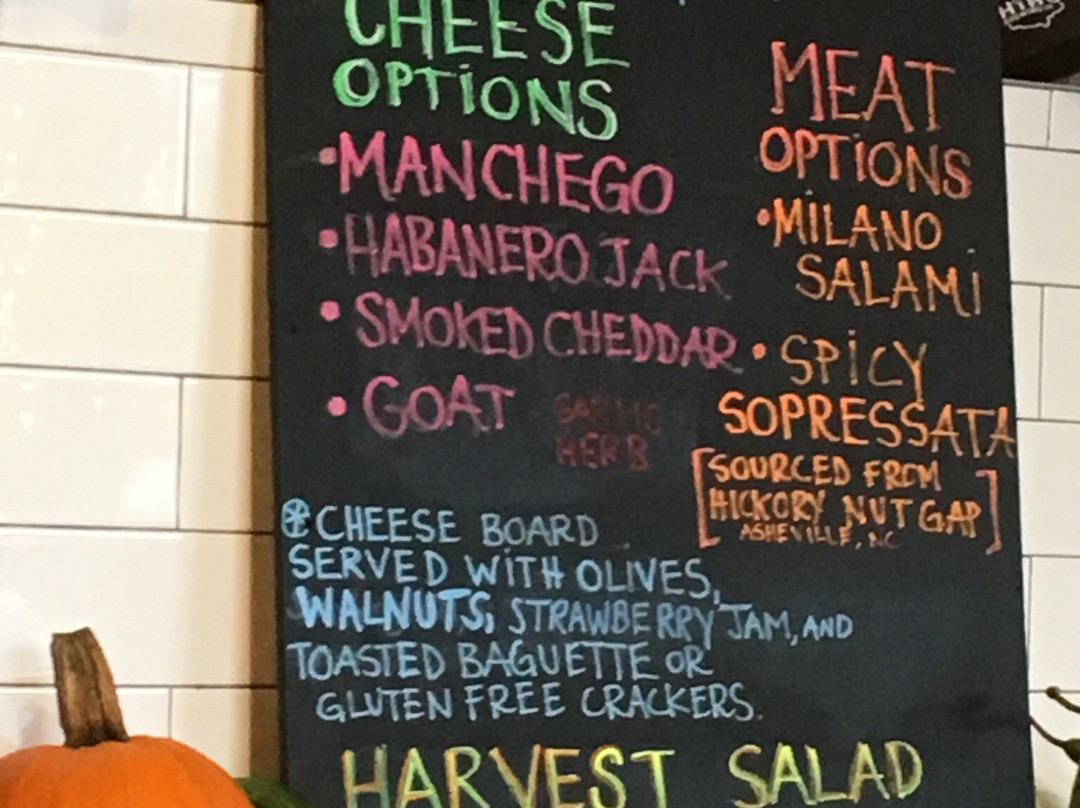 CHEESE
OPTIONS
•MANCHEGO
•HABANERO JACK
•SMOKED CHEDDAR
•GOAT GARLIC
HERB
MEAT
OPTIONS
•MILANO
SALAMI
•SPICY
SOPRESSATA
[SOURCED FROM
HICKORY NUT GAP]
ASHEVILLE, NC
*CHEESE BOARD
SERVED WITH OLIVES,
WALNUTS, STRAWBERRY JAM, AND
TOASTED BAGUETTE OR
GLUTEN FREE CRACKERS.
HARVEST SALAD